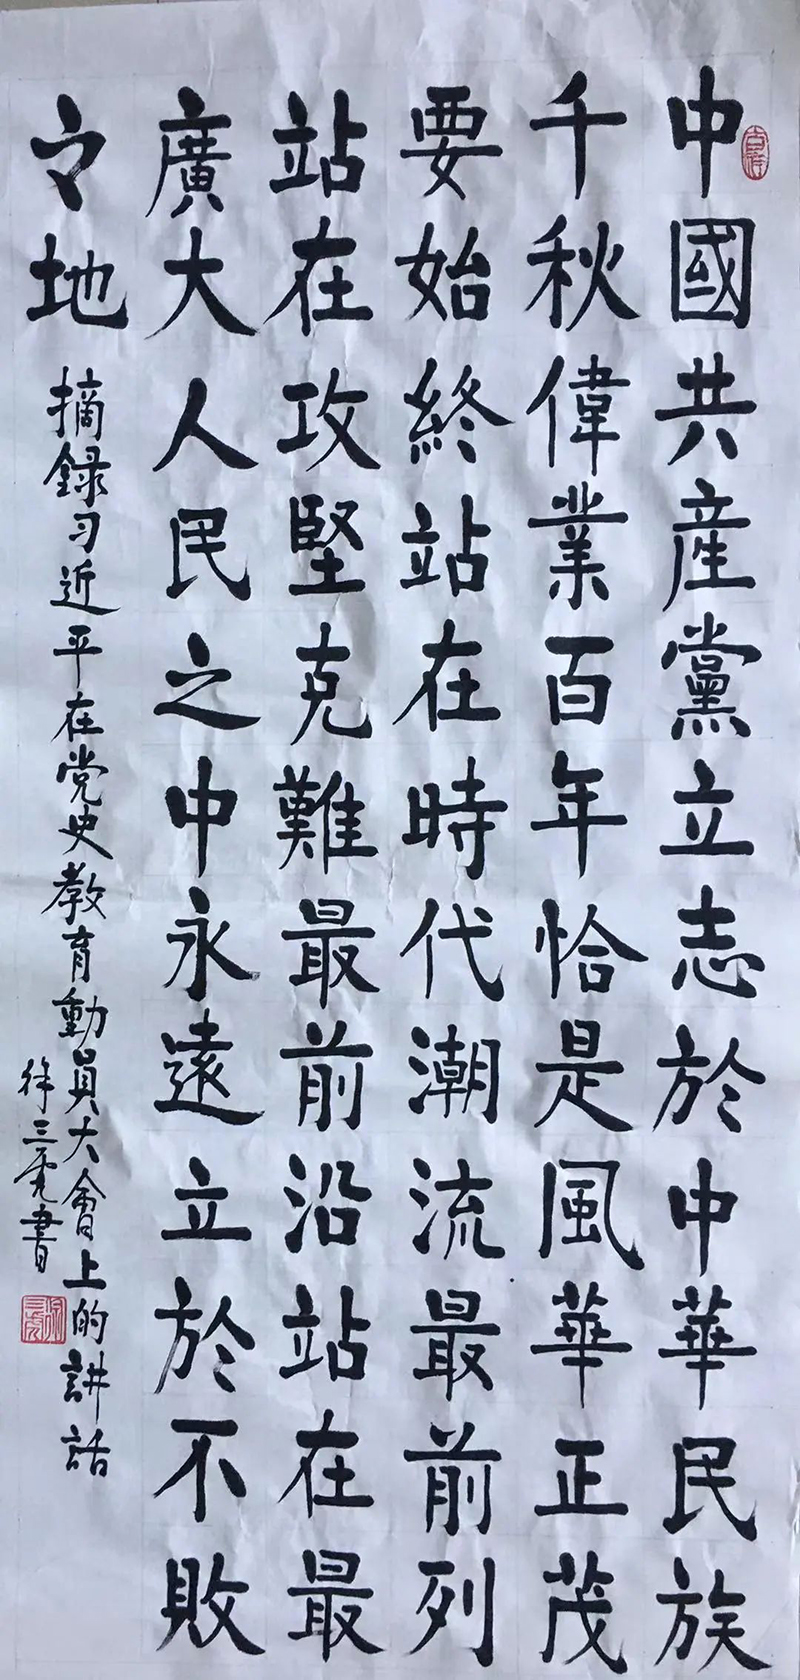 中國共產黨立志於中華民族
千秋偉業百年恰是風華正茂
要始終站在時代潮流最前列
站在攻堅克難最前沿站在最
廣大人民之中永遠立於不敗
之地
摘錄习近平在党史教育動員大會上的講話
徐三虎書